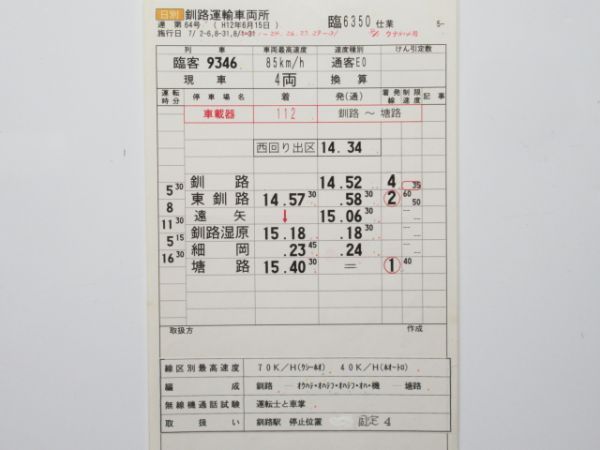 日別 釧路運輸車両所 臨6350 仕業 5-
運 第 64号 ( H12年6月15日 )
施行日 7/ 2-6,8-31,8/
列車 車両最高速度 速度種別 けん引定数
臨客 9346 85km/h 通客E0
現車 4両 換算
運転時分 停車場名 着 発(通) 着発線 制限速度 記事
車載器 112 釧路 ～ 塘路
西回り出区 14.34
釧路 14.52 4 35
5 30 東釧路 14.57 30 .58 30 2 60 50
8 遠矢 ↓ 15.06 30
11 30 釧路湿原 15.18 .18 30
5 15 細岡 .23 45 .24
16 30 塘路 15.40 30 = 1 40
取扱方 作成
線区別最高速度 70K/H(クシーホオ) 40K/H(ホオートロ)
編成 釧路 ―オクハテ・オハテフ・オハテフ・オハ・機 ―塘路
無線機通話試験 運転士と車掌
取扱い 釧路駅 停止位置 固定 4